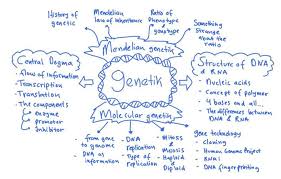 History of
genetic
Mendelian
law of Inheritance
Ratio of
Phenotype
genotype
Something
strange
about the
ratio
Mendelian genetik
Central Dogma
- flow of information
- Transcription
- Translation
- The components
enzyme
promoter
Inhibitor
Genetik
Structure of DNA
& RNA
- Nucleic acids
- Concept of polymer
- 4 bases and all...
- The differences between
DNA & RNA
Molecular genetik
- from gene
to genome
- DNA as
information
- DNA
replication
- Type of
replication
- Mitosis
- Meiosis
- Haploid
- Diploid
gene technology
- cloning
- Human Genome Project
- RNAi
- DNA fingerprinting